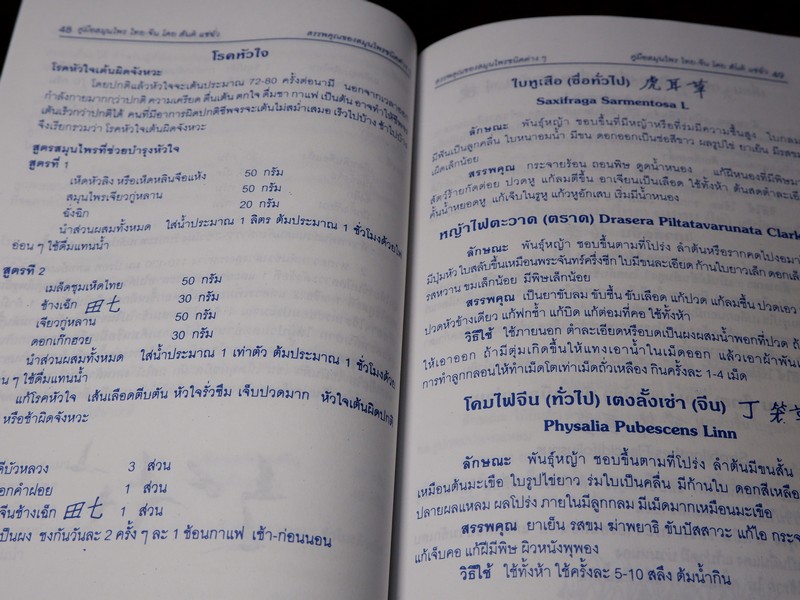 48 คู่มือสมุนไพร ไทย-จีน โดย ตันติ แซ่ซิ่ว
สรรพคุณของสมุนไพรชนิดต่างๆ
โรคหัวใจ
โรคหัวใจเต้นผิดจังหวะ
โดยปกติแล้วหัวใจจะเต้นประมาณ 72-80 ครั้งต่อนาที นอกจาก
กำลังกายมากกว่าปกติ ความเครียด ตื่นเต้น ตกใจ ดื่มชา กาแฟ เป็นต้น อาจทำให้
เต้นเร็วกว่าปกติได้ คนที่มีอาการผิดปกติชีพจรจะเต้นไม่สม่ำเสมอ เร็วไปบ้าง ช้าไปบ้าง
จึงเรียกรวมว่า โรคหัวใจเต้นผิดจังหวะ
สูตรสมุนไพรที่ช่วยบำรุงหัวใจ
สูตรที่ 1
เห็ดหัวลิง หรือเห็ดหลินจือแห้ง 50 กรัม
สมุนไพรเจียวกู่หลาน 50 กรัม
อั่งฉิก 20 กรัม
นำส่วนผสมทั้งหมด ใส่น้ำประมาณ 1 ลิตร ต้มประมาณ 1 ชั่วโมงด้วยไฟ
อ่อน ๆ ใช้ดื่มแทนน้ำ
สูตรที่ 2
เมล็ดชุมเห็ดไทย 50 กรัม
ซำฉิก 田七 30 กรัม
เจียวกู่หลาน 50 กรัม
ดอกเก๊กฮวย 30 กรัม
นำส่วนผสมทั้งหมด ใส่น้ำประมาณ 1 เท่าตัว ต้มประมาณ 1 ชั่วโมงด้วย
น ๆ ใช้ดื่มแทนน้ำ
แก้โรคหัวใจ เส้นเลือดตีบตัน หัวใจรั่วซึม เจ็บปวดมาก หัวใจเต้นผิดปกติ
หรือช้าผิดจังหวะ
ดีบัวหลวง 3 ส่วน
อกคำฝอย 1 ส่วน
田七 1 ส่วน
เป็นผง ชงกินวันละ 2 ครั้ง ๆ ละ 1 ช้อนกาแฟ เช้า-ก่อนนอน
สรรพคุณของสมุนไพรชนิดต่าง ๆ
คู่มือสมุนไพร ไทย-จีน โดย ตันติ แซ่ซิ่ว 49
ใบหูเสือ (ชื่อทั่วไป) 虎耳草
Saxifraga Sarmentosa L
ลักษณะ พันธุ์หญ้า ชอบขึ้นที่มีหญ้าหรือที่ร่มมีความชื้นสูง ใบกลม
มีพันเป็นลูกคลื่น ใบหนาอมน้ำ มีขน ดอกออกเป็นช่อสีขาว ผลรูปไข่ ยาเย็น มีรสขม
เผ็ดเล็กน้อย
สรรพคุณ กระจายร้อน ถอนพิษ ดูดน้ำหนอง แก้ฝีหนองที่มีพิษ
สัตว์ร้ายกัดต่อย ปวดหู แก้ลมตีขึ้น อาเจียนเป็นเลือด ใช้ทั้งห้า ต้นสดตำละเอียด
คั้นน้ำหยอดหู แก้เจ็บในรูหู แก้วหูอักเสบ เริมมีน้ำหนอง
หญ้าไฟตะวาด (ตราด) Drasera Piltatavarunata Clark
ลักษณะ พันธุ์หญ้า ชอบขึ้นตามที่โปร่ง ลำต้นหรือรากคดไปงอมา
มีปุ่มหัว ใบสลับขึ้นเหมือนพระจันทร์ครึ่งซีก ใบมีขนละเอียด ก้านใบยาวเล็ก ดอกเล็ก
รสหวาน ขมเล็กน้อย มีพิษเล็กน้อย
สรรพคุณ เป็นยาขับลม ขับชื้น ขับเลือด แก้ปวด แก้ลมชื้น ปวดเอว
ปวดหัวข้างเดียว แก้ฟกช้ำ แก้บิด แก้ต่อมที่คอ ใช้ทั้งห้า
วิธีใช้ ใช้ภายนอก ตำละเอียดหรือบดเป็นผงผสมน้ำพอกที่ปวด ถ้า
ให้เอาออก ถ้ามีตุ่มเกิดขึ้นให้แทงเอาน้ำในเม็ดออก แล้วเอาผ้าพัน
การทำลูกกลอนให้ทำเม็ดโตเท่าเม็ดถั่วเหลือง กินครั้งละ 1-4 เม็ด
โคมไฟจีน (ทั่วไป) เตงลั้งเช่า (จีน) 丁笼草
Physalia Pubescens Linn
ลักษณะ พันธุ์หญ้า ชอบขึ้นตามที่โปร่ง ลำต้นมีขนสั้น
เหมือนต้นมะเขือ ใบรูปไข่ยาว ร่มใบเป็นคลื่น มีก้านใบ ดอกสีเหลือ
ปลายผลแหลม ผลโปร่ง ภายในมีลูกกลม มีเม็ดมากเหมือนมะเขือ
สรรพคุณ ยาเย็น รสขม ฆ่าพยาธิ ขับปัสสาวะ แก้ไอ กระจ
แก้เจ็บคอ แก้ฝีมีพิษ ผิวหนังพุพอง
วิธีใช้ ใช้ทั้งห้า ใช้ครั้งละ 5-10 สลึง ต้มน้ำกิน